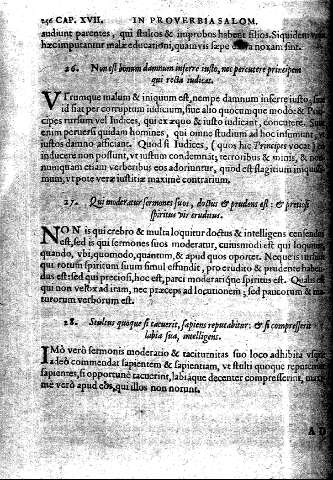 256 CAP. XVII. IN PROVERBIA SALOM.
audiunt parentes, qui stultos & improbos habent filios. Siquidem
hæc imputantur malæ educationi, quamvis sæpe extra noxam sint.
26. Non est bonum damnum inferre iusto, nec percutere principem
qui recta iudicat.
Vtrumque malum & iniquum est, nempe damnum inferre iusto,
id fiat per corruptum iudicium, siue alio quocumque modo: &
cipes rursum vel Iudices, qui ex æquo & iusto iudicant, concutere.
enim peruersi quidam homines, qui omne studium ad hoc insumunt, vt
iustos damno afficiant. Quod si Iudices, (quos hic Principes vocat)
inducere non possunt, vt iustum condemnat; terroribus & minis, &
nunquam etiam verberibus eos adoriuntur, quod est flagitium
mum, vt pote veræ iustitiæ maximè contrarium.
27. Qui moderatur sermones suos, doctus & prudens est: & pretiosi
spiritus vir eruditus.
NON is qui crebro & multa loquitur doctus & intelligens censendus
est, sed is qui sermones suos moderatur, cuiusmodi est qui
quando, vbi, quomodo, quantum, & apud quos oportet. Neque is
qui totum spiritum suum simul effundit, pro erudito & prudente
dus est: sed qui preciosi, hoc est, parci moderatique spiritus est.
qui non velox ad iram, nec præceps ad locutionem; sed paucorum &
turorum verborum est.
28. Stultus quoque si tacuerit, sapiens reputabitur: & si compresserit
labia sua, intelligens.
IMò verò sermonis moderatio & taciturnitas suo loco adhibita
adeò commendat sapientem & sapientiam, vt stulti quoque
sapientes, si opportunè tacuerint, labiaque decenter compresserint,
mè verò apud eos, qui illos non norunt.